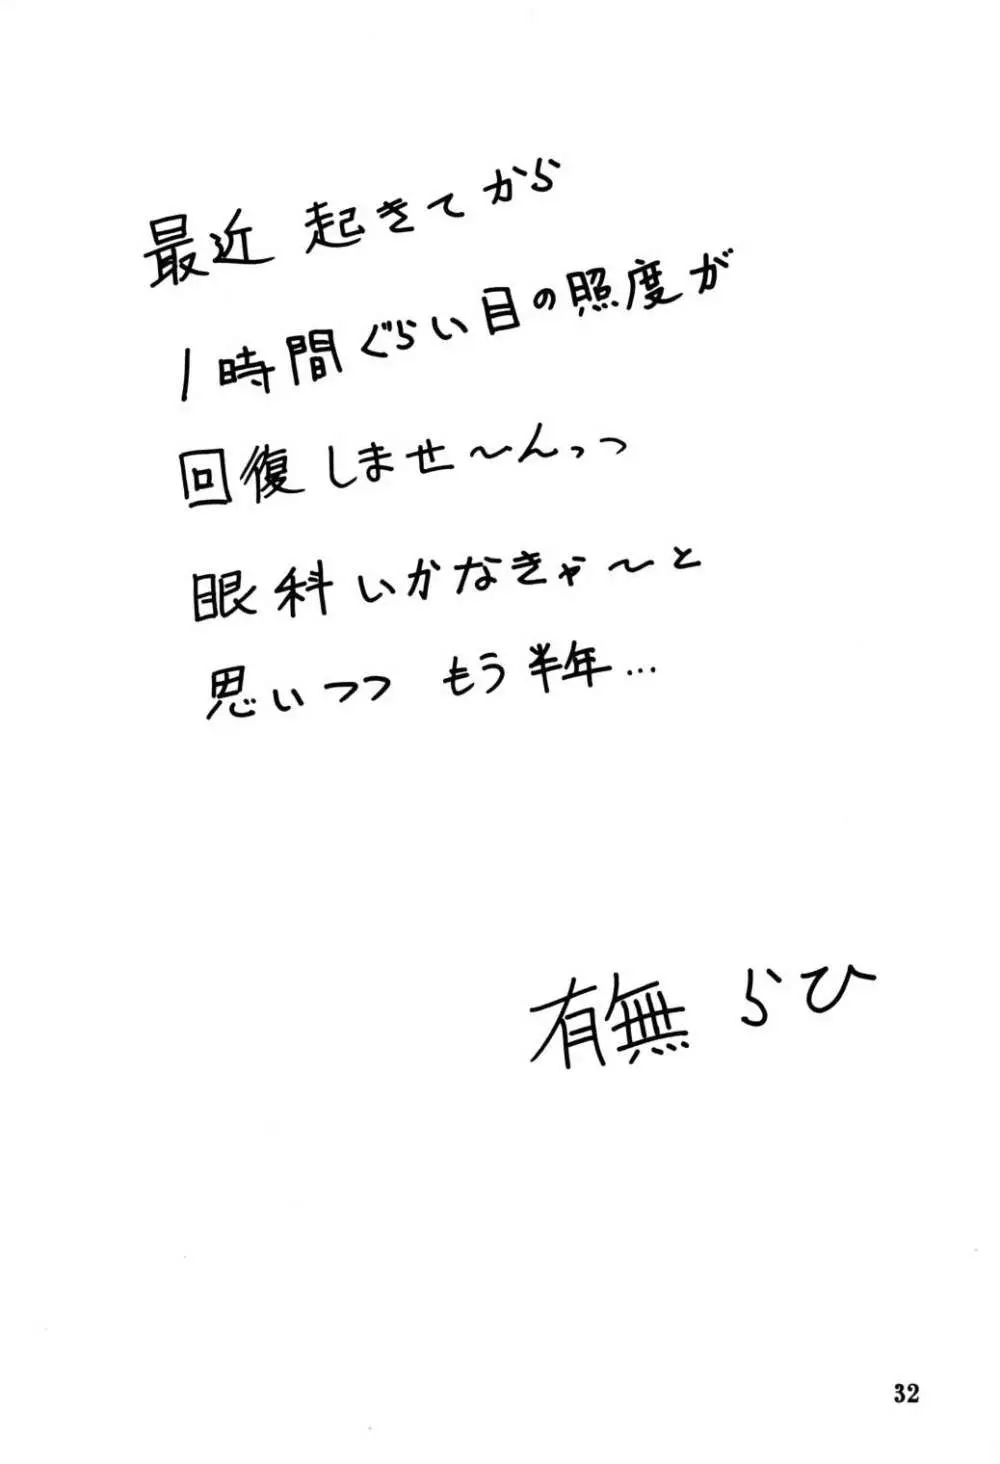 最近 起きてから
1時間ぐらい目の照度が
回復しませ〜んっっ
眼科いかなきゃ〜と
思いつつ もう半年…
有無らひ
32